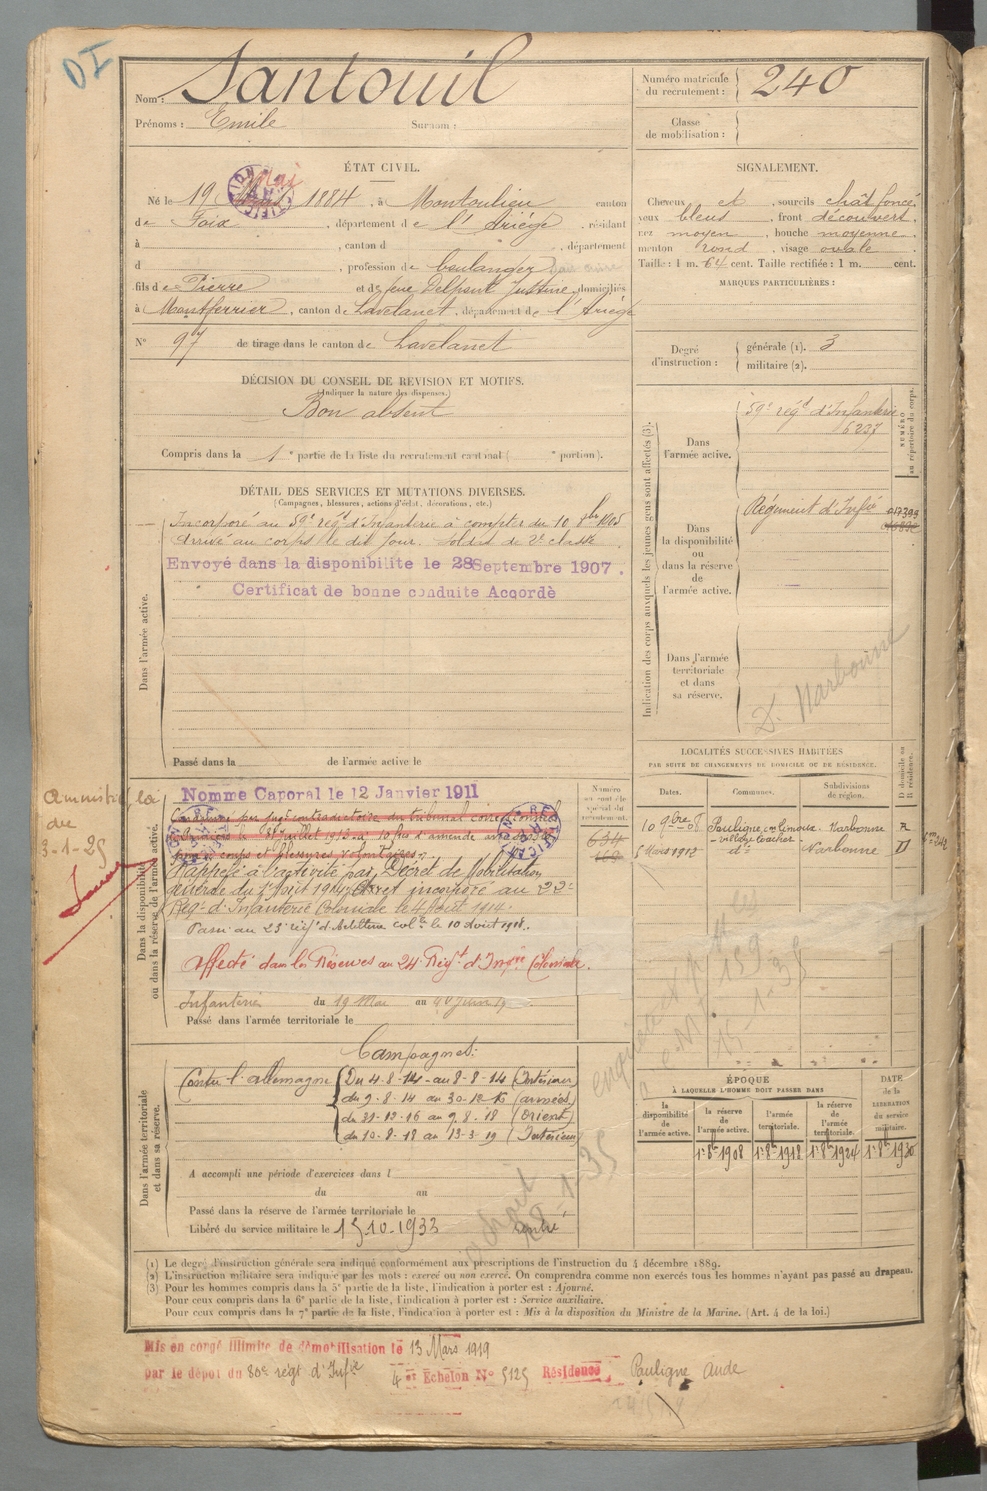 DI
Nom : Santouil
Prénoms : Emile Surnom :
Numéro matricule du recrutement : 240
Classe de mobilisation :
ÉTAT CIVIL.
Né le 19 Mai 1884, à Montoulieu canton
de Foix, département de l'Ariège, résidant
à , canton d , département
d , profession de boulanger
fils de Pierre et de feue Delpont Justine, domiciliés
à Montferrier, canton de Lavelanet, département de l'Ariège
N° 97 de tirage dans le canton de Lavelanet
SIGNALEMENT.
Cheveux et , sourcils chât foncé,
yeux bleus , front découvert,
nez moyen , bouche moyenne,
menton rond , visage ovale
Taille : 1 m. 64 cent. Taille rectifiée : 1 m. cent.
MARQUES PARTICULIÈRES :
Degré d'instruction : générale (1). 3
militaire (2).
DÉCISION DU CONSEIL DE REVISION ET MOTIFS.
(Indiquer la nature des dispenses.)
Bon absent
Compris dans la 1e partie de la liste du recrutement cantonal ( e portion).
DÉTAIL DES SERVICES ET MUTATIONS DIVERSES.
(Campagnes, blessures, actions d'éclat, décorations, etc.)
Dans l'armée active.
Incorporé au 59e régt d'Infanterie à compter du 10 8bre 1905
Arrivé au corps le dit jour. Soldat de 2e classe
Envoyé dans la disponibilite le 28 Septembre 1907.
Certificat de bonne conduite Accordè
Passé dans la de l'armée active le
Indication des corps auxquels les jeunes gens sont affectés (3).
NUMÉRO au répertoire du corps.
Dans l'armée active.
59e régt d'Infanterie
6237
Dans la disponibilité ou dans la réserve de l'armée active.
Régiment d'Infie
017393
Dans l'armée territoriale et dans sa réserve.
D. Narbonne
LOCALITÉS SUCCESSIVES HABITÉES
PAR SUITE DE CHANGEMENTS DE DOMICILE OU DE RÉSIDENCE.
Dates. Communes. Subdivisions de région. D domicile ou R résidence.
10 9bre 08 Pauligne con Limoux Narbonne R
5 Mars 1912 do Narbonne D
amnistié loi
du
3-1-25
Dans la disponibilité ou dans la réserve de l'armée active.
Nomme Caporal le 12 Janvier 1911
Condamné par jugt contradictoire du tribunal correctionnel
coups et blessures volontaires.
Rappelé à l'activité par Décret de Mobilisation
générale du 1er Août 1914 et incorporé au 22e
Régt d'Infanterie Coloniale le 4 Août 1914.
Passé au 23e régt d'Artillerie colle le 10 août 1918.
Affecté dans les Réserves au 24e Régt d'Infie Coloniale.
Infanterie du 19 Mai au
Passé dans l'armée territoriale le
Numéro au contrôle spécial du recrutement.
634
Dans l'armée territoriale et dans sa réserve.
Campagnes:
Contre l'allemagne
Du 4-8-14 au 8-8-14 (Intérieur)
du 9-8-14 au 30-12-16 (armées)
du 31-12-16 au 9-8-18 (Orient)
du 10-8-18 au 13-3-19 (Intérieur)
A accompli une période d'exercices dans l
du au
Passé dans la réserve de l'armée territoriale le
Libéré du service militaire le 15-10-1933
ÉPOQUE
À LAQUELLE L'HOMME DOIT PASSER DANS
DATE de la LIBÉRATION du service militaire.
la disponibilité de l'armée active. la réserve de l'armée active. l'armée territoriale. la réserve de l'armée territoriale.
1er 8bre 1908 1er 8bre 1918 1er 8bre 1924 1er 8bre 1930
(1) Le degré d'instruction générale sera indiqué conformément aux prescriptions de l'instruction du 4 décembre 1889.
(2) L'instruction militaire sera indiquée par les mots : exercé ou non exercé. On comprendra comme non exercés tous les hommes n'ayant pas passé au drapeau.
(3) Pour les hommes compris dans la 5e partie de la liste, l'indication à porter est : Ajourné.
Pour ceux compris dans la 6e partie de la liste, l'indication à porter est : Service auxiliaire.
Pour ceux compris dans la 7e partie de la liste, l'indication à porter est : Mis à la disposition du Ministre de la Marine. (Art. 4 de la loi.)
Mis en congé illimité de démobilisation le 13 Mars 1919
par le dépot du 80e régt d'Infie 4e Echelon N° 5125 Résidence Pauligne Aude